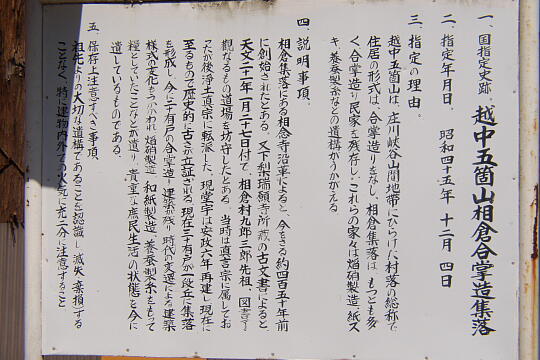 一、国指定史跡。越中五箇山相倉合掌造集落
二、指定年月日、昭和四十五年 十二月 四日
三、指定の理由。
越中五箇山は、庄川峡谷山間地帯にひらけた村落の総称で
住居の形式は、合掌造りをなし、相倉集落は、もっとも多
く合掌造り民家を残存し、これらの家々は焔硝製造、紙ス
キ、養蚕製糸などの遺構がうかがえる。
四、説明事項。
相倉集落にある相念寺沿革によると、今をさる約四百五十年前
に創始されたとある。又下梨瑞願寺所蔵の古文書によると、
天文二十一年二月二十七日付で、相倉村九郎三郎先祖、図書了
観なるもの道場を坊守したとある。当時は真言宗に属してお
ったが後浄土真宗に転派した。現堂宇は安政六年再建し現在に
至るもので歴史的に古さが立証される。現在三十有戸が一段丘に集落
を形成し、今二十有戸の合掌造り建築が残り時代の変遷による建築
様式の変化もうかがわれ、焔硝製造、和紙製造、養蚕製糸をもって
糧としていたことなどが遺り、貴重な庶民生活の状態を今に
遺しているものである。
五、保存上注意すべき事項。
祖先よりの大切な遺構であることを認識し、滅失、棄損する
ことなく、特に建物内外での火気に充二分に注意すること